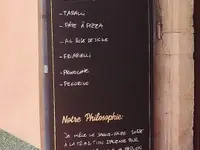 - TARALLI
- PÂTE À PIZZA
- AL ROSE DE SICILE
- FRIARIELLI
- PROVOLONE
- PECORINO
Notre Philosophie:
"JE MÊLE LE SAVOIR-FAIRE
À LA TRADITION ITALIENNE POUR